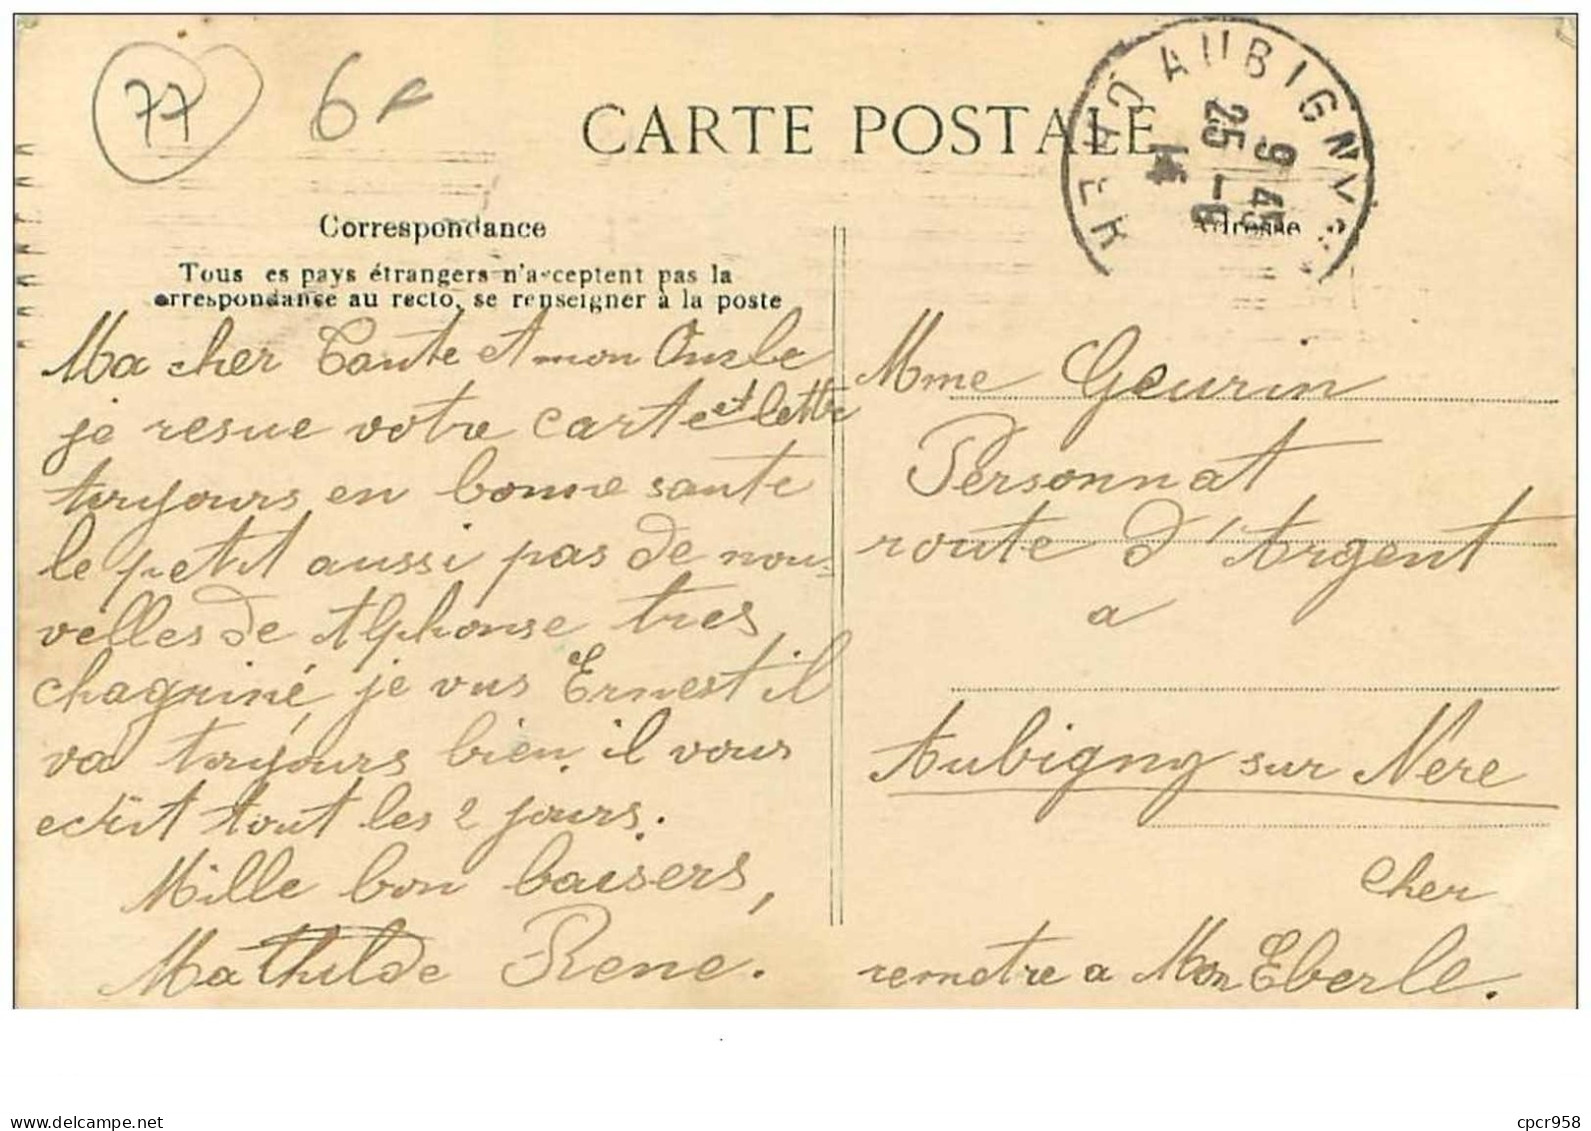 77
6
CARTE POSTALE
AUBIGNY-S
CHER
9 45
25 - 
14
Correspondance
Adresse
Tous es pays étrangers n'acceptent pas la
orrespondance au recto, se renseigner à la poste
Ma cher Tante et mon Oncle
je resue votre carte et lettre
toryours en bonne sante
le petit aussi pas de nou-
velles de Alphonse tres
chagriné je vus Ernest il
va toryours bien. il vous
ecrit tout les 2 jours.
Mille bon baisers,
Mathilde Rene.
Mme Geurin
Personnat
route d'Argent
a
Aubigny sur Nere
Cher
remetre a Mon Eberle.
www.delcampe.net
cpcr958